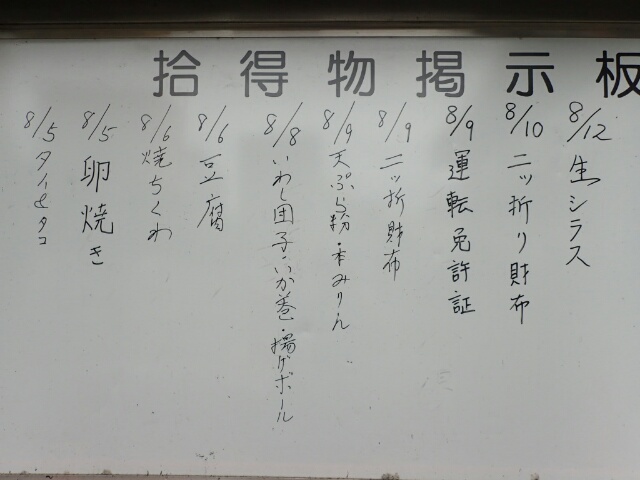 拾得物掲示板
8/12 生シラス
8/10 二ッ折り財布
8/9 運転免許証
8/9 二ッ折財布
8/9 天ぷら粉・本みりん
8/8 いわし団子・いか巻・揚げボール
8/6 豆腐
8/6 焼ちくわ
8/5 卵焼き
8/5 タイとタコ